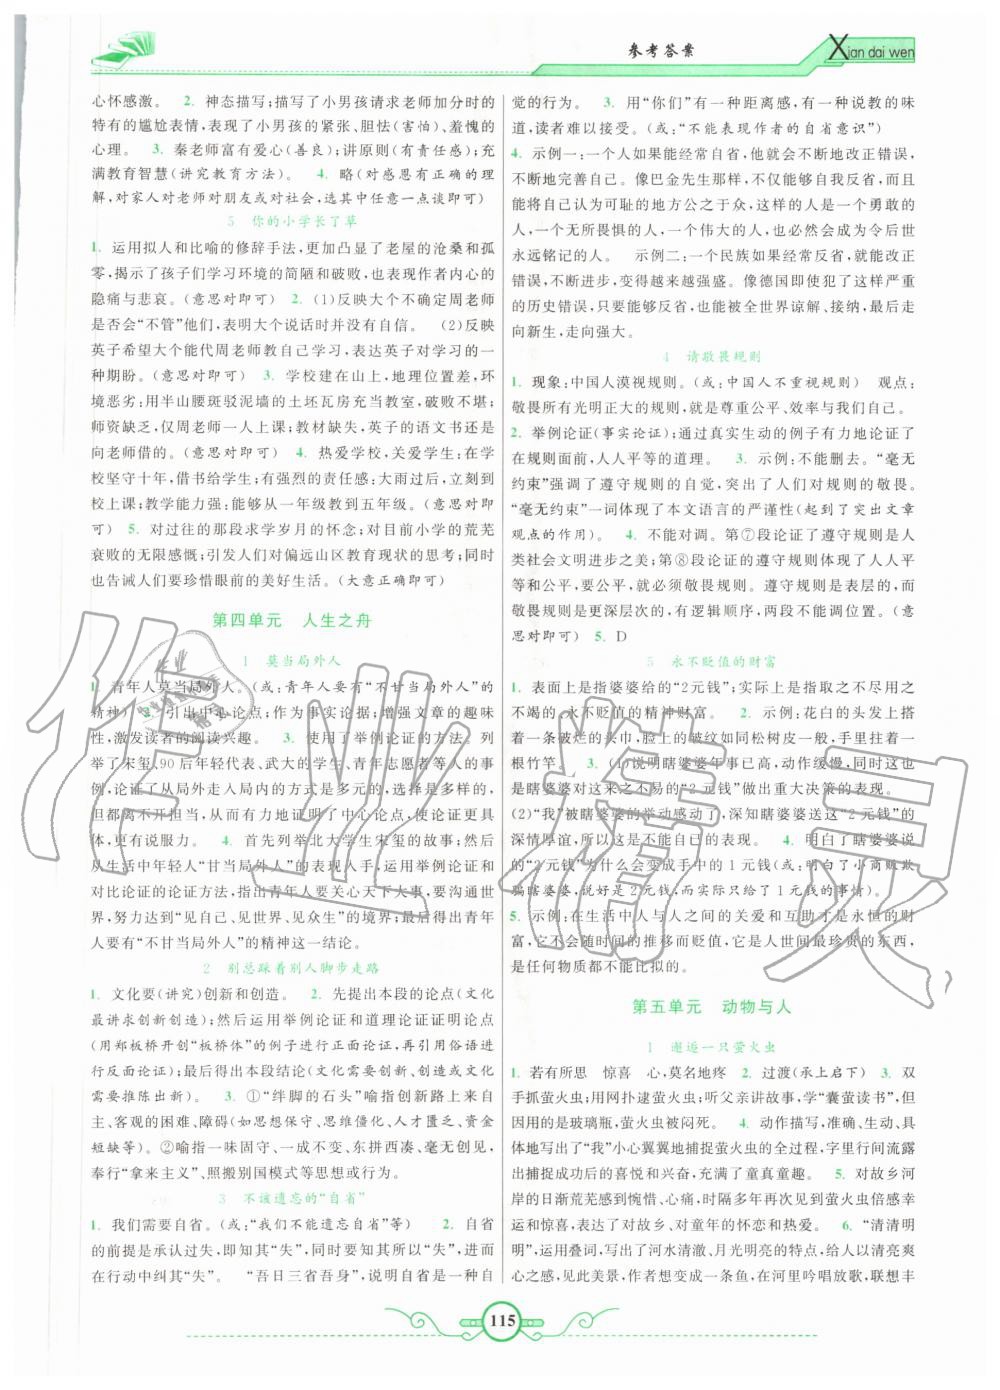 参考答案
Xian dai wen
心怀感激。 2. 神态描写;描写了小男孩请求老师加分时的
特有的尴尬表情,表现了小男孩的紧张、胆怯(害怕)、羞愧的
心理。 3. 秦老师富有爱心(善良);讲原则(有责任感);充
满教育智慧(讲究教育方法)。 4. 略(对感恩有正确的理解,
对家人对老师对朋友或对社会,选其中任意一点谈即可)
5 你的小学长了草
1. 运用拟人和比喻的修辞手法,更加凸显了老屋的沧桑和孤
零,揭示了孩子们学习环境的简陋和破败,也表现作者内心的
隐痛与悲哀。(意思对即可) 2. (1)反映大个不确定周老师
是否会“不管”他们,表明大个说话时并没有自信。 (2)反映
英子希望大个能代周老师教自己学习,表达英子对学习的一
种期盼。(意思对即可) 3. 学校建在山上,地理位置偏僻,环
境恶劣;用半山腰斑驳泥墙的土坯瓦房充当教室,破败不堪;
师资缺乏,仅周老师一人上课;教材缺失,英子的语文书还是
向老师借的。(意思对即可) 4. 热爱学校,关爱学生;在学
校坚守十年,借书给学生;有强烈的责任感:大雨过后,立刻到
校上课;教学能力强;能够从一年级教到五年级。(意思对即
可) 5. 对过往的那段求学岁月的怀念;对目前小学的荒芜
衰败的无限感慨;引发人们对偏远山区教育现状的思考;同时
也告诫人们要珍惜眼前的美好生活。(大意正确即可)
第四单元 人生之舟
1 莫当局外人
1. 青年人莫当局外人。(或:青年人要有“不甘当局外人”的
精神) 2. 引出中心论点;作为事实论据;增强文章的趣味
性,激发读者的阅读兴趣。 3. 使用了举例论证的方法。列
举了宋玺、90后年轻代表、武大的学生、青年志愿者等人的事
例,论证了从局外走入局内的方式是多元的,选择是多样的,
但都离不开担当,从而有力地证明了中心论点,使论证更具
体,更有说服力。 4. 首先列举北大学生宋玺的故事;然后
从生活中年轻人“甘当局外人”的表现入手,运用举例论证和
对比论证的论证方法,指出青年人要关心天下大事,要沟通世
界,努力达到“见自己、见世界、见众生”的境界;最后得出青年
人要有“不甘当局外人”的精神这一结论。
2 别总踩着别人脚步走路
1. 文化要(讲究)创新和创造。 2. 先提出本段的论点(文化
最讲求创新创造);然后运用举例论证和道理论证证明论点
(用郑板桥开创“板桥体”的例子进行正面论证,再从反面进
行反面论证);最后得出本段结论(文化需要创新、文化需要
需要推陈出新)。 3. ①“绊脚的石头”喻指创新路上来自主
主、客观的困难、障碍(如思想保守、思维僵化、人才匮乏、资金
短缺等)。②喻指一味固守、一成不变、东拼西凑、毫无创见,
奉行“拿来主义”、照搬别国模式等思想或行为。
3 不该遗忘的“自省”
1. 我们需要自省。(或:“我们不能遗忘自省”等) 2. 自省
的前提是承认过失,即知其“失”,同时要知其所以“失”,进而
在行动中纠其“失”。 “吾日三省吾身”,说明自省是一种自
觉的行为。 3. 用“你们”有一种距离感,有一种说教的味
道,读者难以接受。(或:“不能表现作者的自省意识”)
4. 示例一:一个人如果能经常自省,他就会不断地改正错误,
不断地完善自己。像巴金先生那样,不仅自我反省,而且还
能将自己认为可耻的地方公之于众,这样的人是一个勇敢的
人,一个无所畏惧的人,一个伟大的人,也必然会成为令后世
永远铭记的人。 示例二:一个民族如果经常反省,就能改正
错误,不断进步,变得越来越强盛。像德国即使犯了这样严重
的历史错误,只要能够反省,也能被全世界谅解、接纳,最后走
向新生,走向强大。
4 请敬畏规则
1. 现象:中国人漠视规则。(或:中国人不重视规则) 观点:
敬畏所有光明正大的规则,就是尊重公平、效率与我们自己。
2. 举例论证(事实论证);通过真实生动的例子有力地论证了
在规则面前,人人平等的道理。 3. 示例:不能删去。“毫无
约束”强调了遵守规则的自觉,突出了人人对规则的敬畏。
“毫无约束”一词体现了本文语言的严谨性(起到了突出文章
观点的作用)。 4. 不能对调。第⑦段论证了遵守规则是人
类社会文明进步之美;第⑧段论证的遵守规则体现了人人平
等和公平,要公平,就必须敬畏规则。遵守规则是表层的,而
敬畏规则是更深层次的,有逻辑顺序,两段不能调位置。(意
思对即可) 5. D
5 永不贬值的财富
1. 表面上是指婆婆给的“2元钱”;实际上是指取之不尽用之
不竭的、永不贬值的精神财富。 2. 示例:花白的头发上搭
着一条破烂的头巾,脸上的皱纹如同松树皮一般,手里拄着一
根竹竿。 3. (1)说明瞎婆婆年事已高,动作缓慢,同时这
也是瞎婆婆对这来之不易的“2元钱”做出重大决策的表现。
(2)“我”被瞎婆婆的举动感动了,深知瞎婆婆送这“2元钱”的
深情厚谊,所以这是不能自已的表现。 4. 明白了瞎婆婆说
的“2元钱”为什么会变成手中的1元钱(或:明白了小商贩欺
骗瞎婆婆,说好是2元钱,而实际只给了1元钱的事情)。
5. 示例:在生活中人与人之间的关爱和互助才是永恒的财
富,它不会随时间的推移而贬值,它是人世间最珍贵的东西,
是任何物质都不能比拟的。
第五单元 动物与人
1 邂逅一只萤火虫
1. 若有所思 惊喜 心,莫名地疼 2. 过渡(承上启下) 3. 双
手抓萤火虫;用网扑逮萤火虫;听父亲讲故事,学“囊萤读书”,但
因用的是玻璃瓶,萤火虫死了。 4. 动作描写,准确、生动、具
体地写出了“我”小心翼翼地捕捉萤火虫的全过程,字里行间流露
出捕捉成功后的喜悦和兴奋,充满了童真童趣。 5. 对故乡河
岸的日渐荒芜感到惋惜、心痛,时隔多年再见到萤火虫倍感幸
运和欣喜,表达了对故乡、对童年的怀恋和热爱。 6. “清清明
明”,运用叠词,写出了河水清澈、月光明亮的特点,给人以清亮爽
心之感,见此美景,作者想变成一条鱼,在河里吟唱放歌,联想丰
115
作业精灵